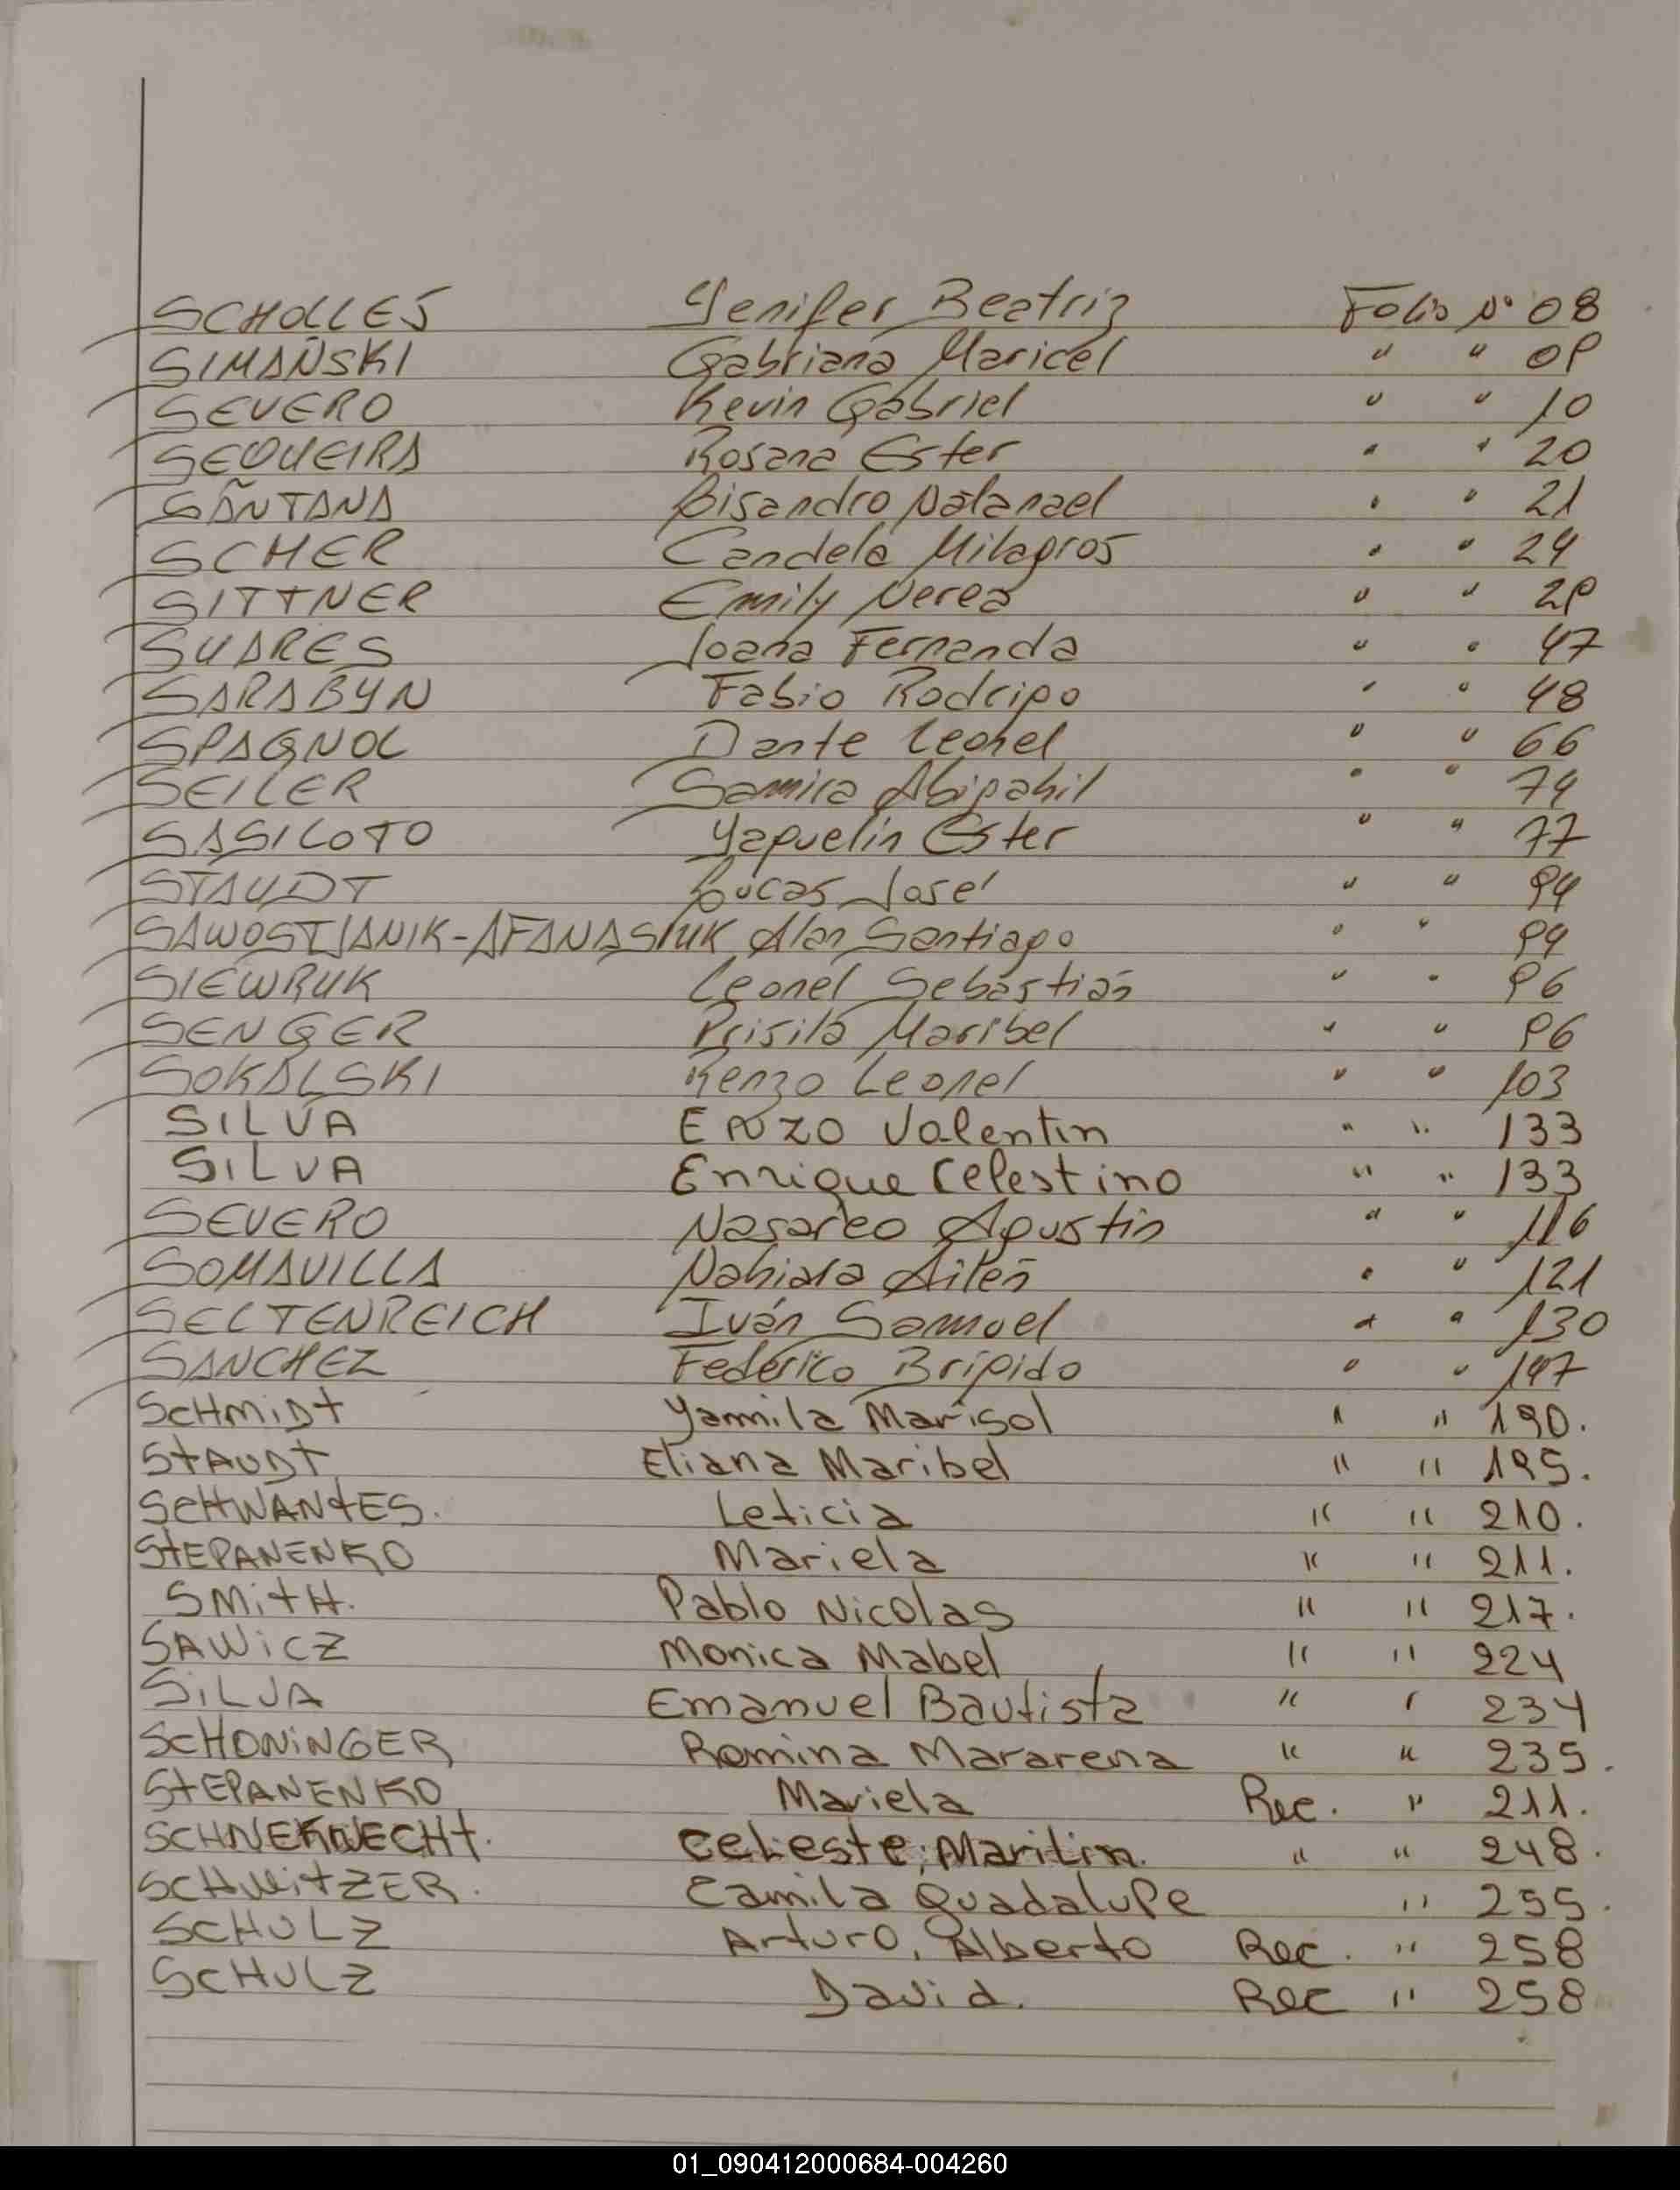 SCHOLLES Yenifer Beatriz Folio Nº 08
SIMAÑSKI Gabriana Maricel " " 09
SEVERO Kevin Gabriel " " 10
SEQUEIRA Rosana Ester " " 20
SAÑTANA Lisandro Natanael " " 21
SCHER Candela Milagros " " 24
SITTNER Emily Nerea " " 29
SUARES Ioana Fernanda " " 47
SARABYN Fabio Rodrigo " " 48
SPAGNOL Dante Leonel " " 66
SEILER Samira Abigahil " " 74
SASILOTO Yaquelin Ester " " 77
STAUDT Lucas José " " 94
SAWOSTJANIK-AFANASIUK Alan Santiago " " 94
SIEWRUK Leonel Sebastián " " 96
SENGER Prisila Maribel " " 96
SOKALSKI Renzo Leonel " " 103
SILVA Enzo Valentin " " 133
SILVA Enrique Celestino " " 133
SEVERO Nasareo Agustin " " 116
SOMAVILLA Nahiara Ailen " " 121
SELTENREICH Iván Samuel " " 130
SANCHEZ Federico Brígido " " 147
SCHMiDt Yamila Marisol " " 190.
StAUDt Eliana Maribel " " 195.
SCHWANtES. Leticia " " 210.
StEPANENKO Mariela " " 211.
SMitH. Pablo Nicolas " " 217.
SAWiCZ Monica Mabel " " 224
SiLVA Emanuel Bautista " " 234
SCHONiNGER Romina Mararena " " 235.
StEPANENKO Mariela Rec. " 211.
SCHNEKNECHt. Celeste, Maritim. " " 248.
Camila Guadalupe " 255.
SCHULZ Arturo, Alberto Rec. " 258
SCHULZ David. Rec " 258
01_090412000684-004260